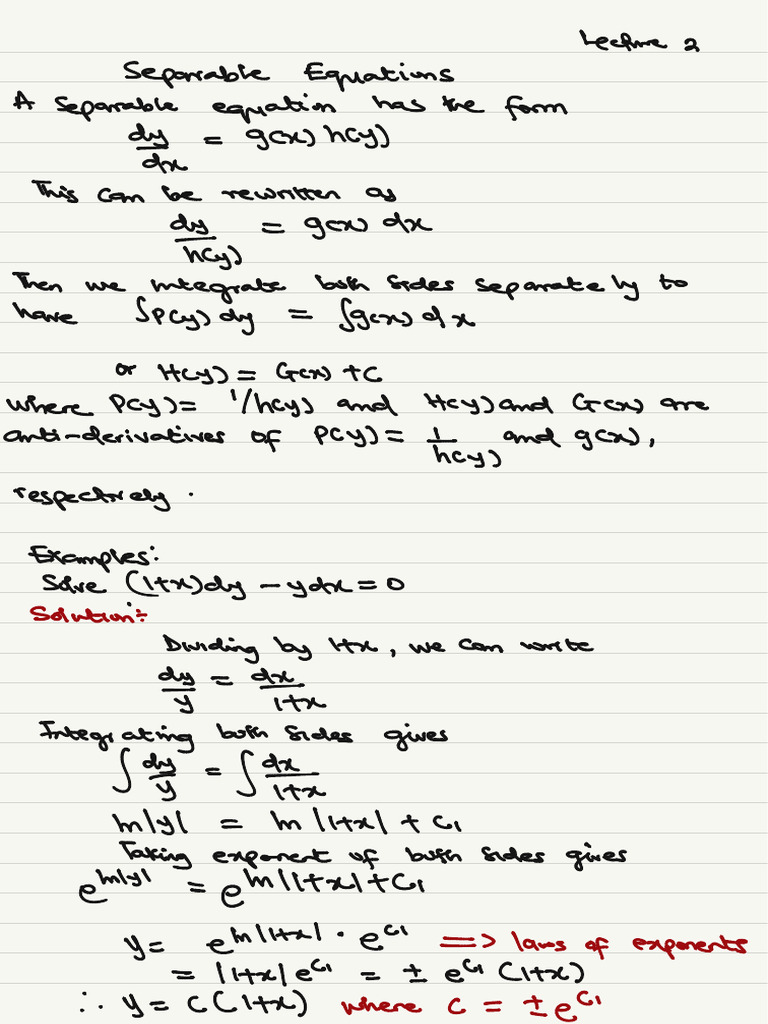 Lecture 2
Separable Equations
A separable equation has the form
dy/dx = g(x) h(y)
This can be rewritten as
dy/h(y) = g(x) dx
Then we integrate both sides separately to
have ∫P(y) dy = ∫g(x) dx
or H(y) = G(x) + C
where P(y) = 1/h(y) and H(y) and G(x) are
anti-derivatives of P(y) = 1/h(y) and g(x),
respectively.
Examples:
Solve (1+x)dy - ydx = 0
Solution:
Dividing by 1+x, we can write
dy/y = dx/1+x
Integrating both sides gives
∫ dy/y = ∫ dx/1+x
ln|y| = ln|1+x| + C₁
Taking exponent of both sides gives
e^ln|y| = e^ln|1+x|+C₁
y = e^ln|1+x| · e^C₁ ⟹ laws of exponents
= |1+x|e^C₁ = ± e^C₁ (1+x)
∴ y = c(1+x) where c = ±e^C₁